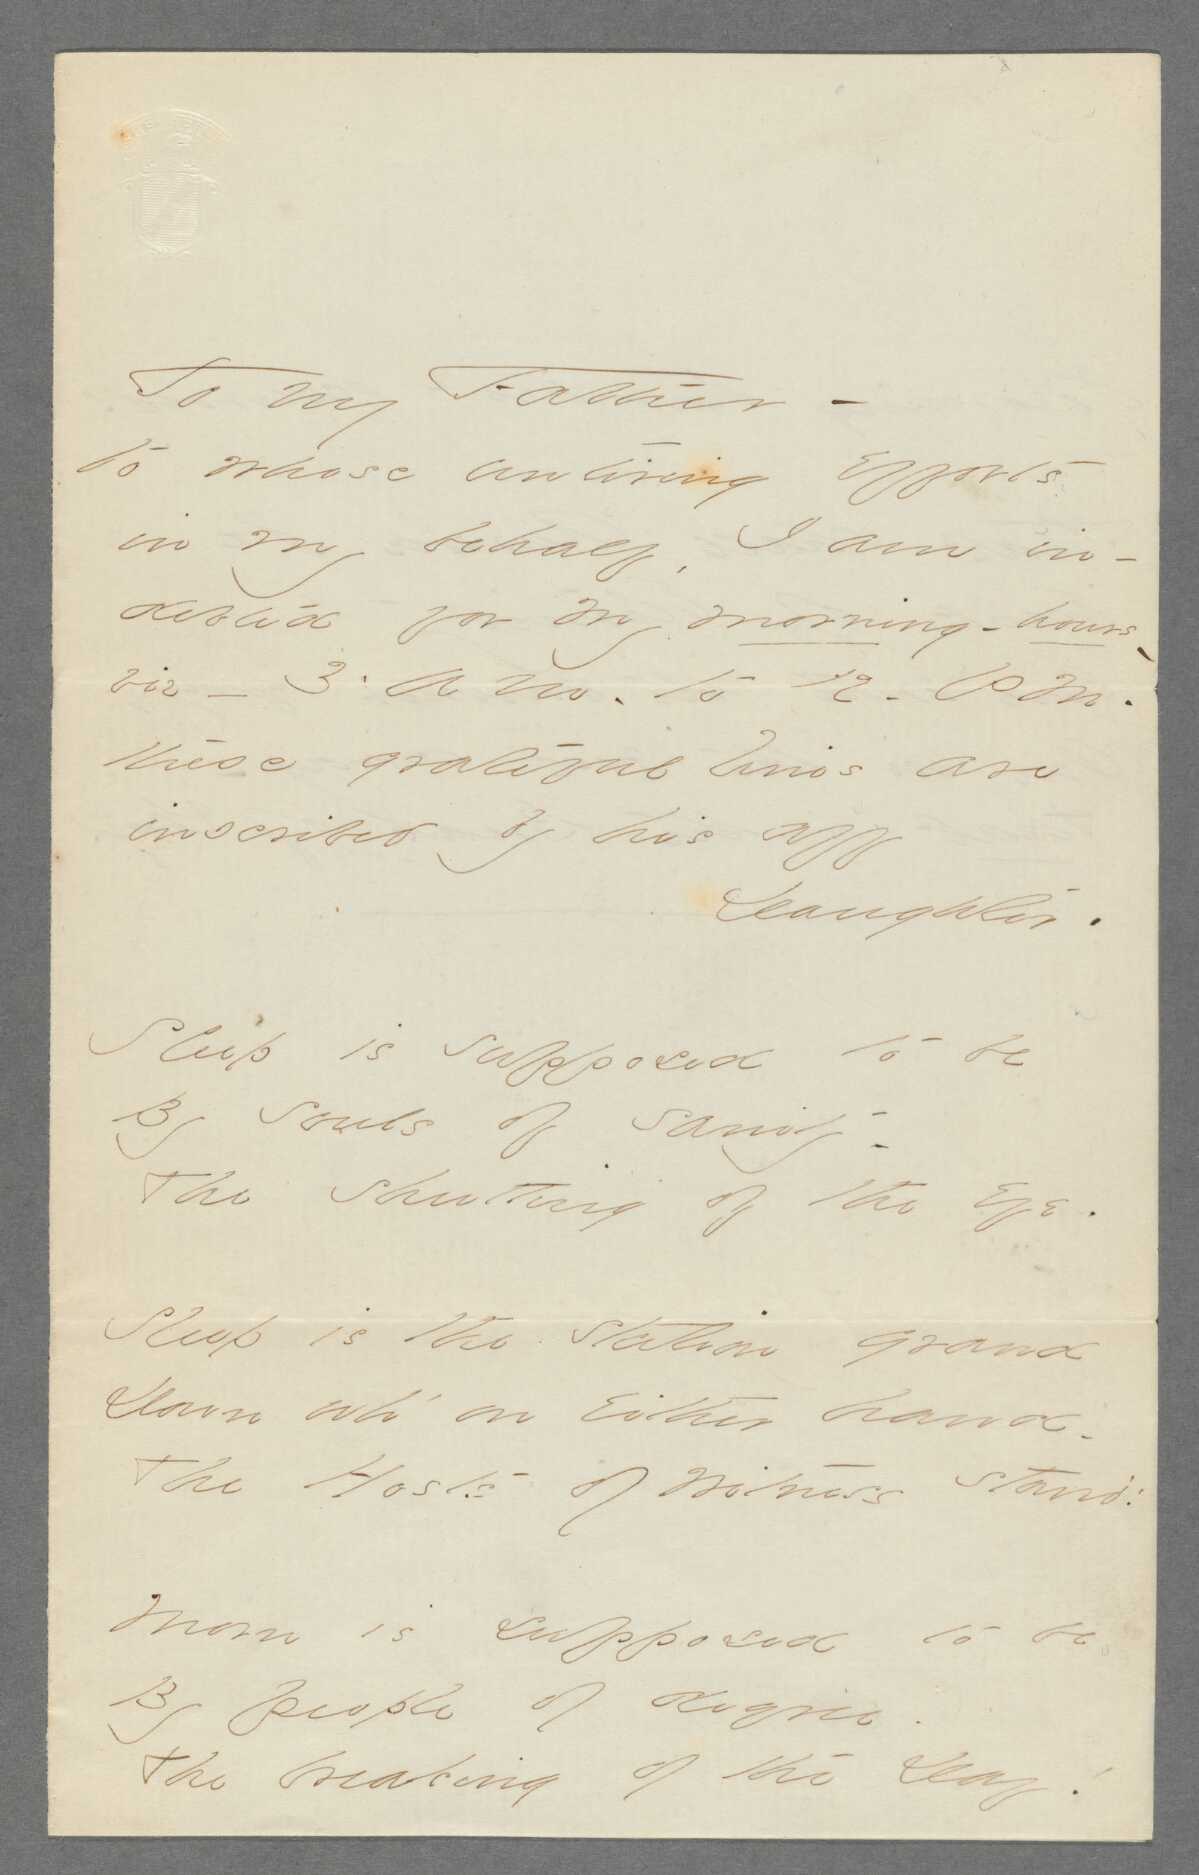 To my Father -
to whose untiring efforts
in my behalf, I am in-
debted for my morning-hours,
viz - 3. A M. to 12 - P M.
these grateful lines are
inscribed by his aff
Daughter.
Sleep is supposed to be
By souls of sanity -
The shutting of the Eye.
Sleep is the station grand
Down wh' on Either hand -
The Hosts of Witness stand!
Morn is supposed to be
By people of degree.
The breaking of the Day!